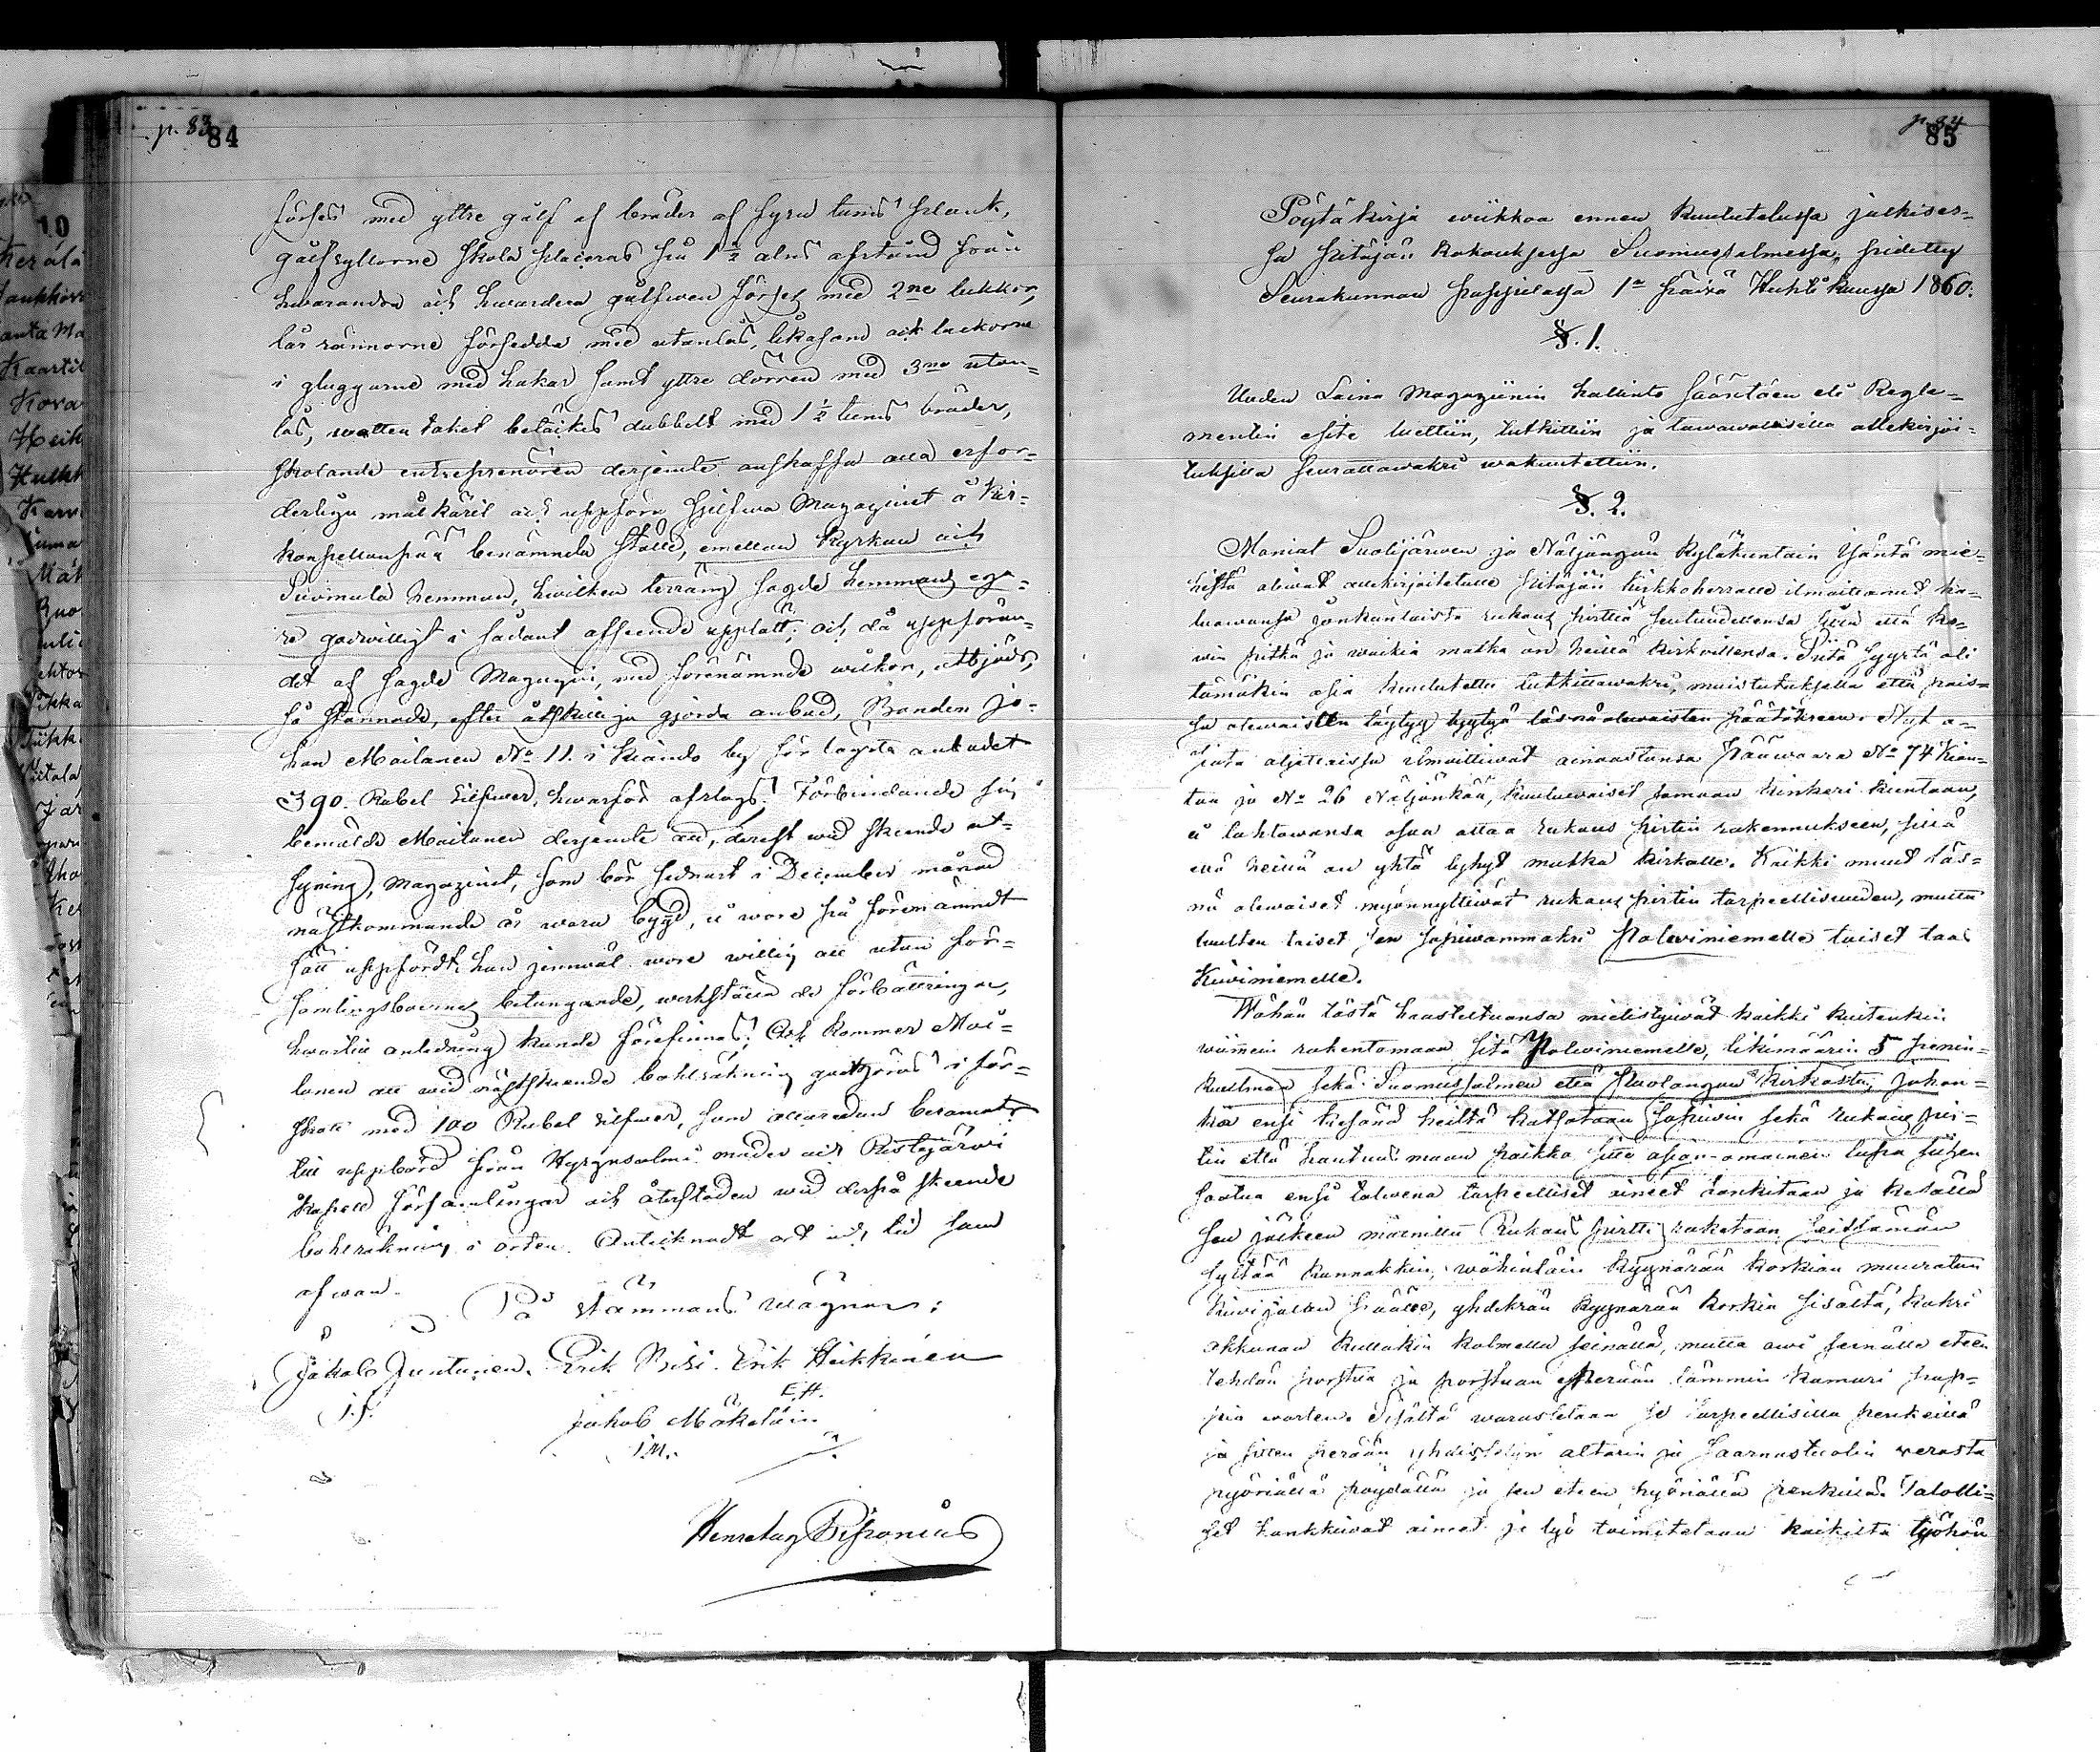 p. 83
84
förses med yttre gålf af bräder af fyra tums plank,
gålfsyllorne skola placeras på 1½ alns afstånd från
hvarandra och hvardera gålfwen förses med 2ne luckor,
lår rännorne försedda med utanlås, likasom ock luckorne
i gluggarne med hakar samt yttre dörren med 3ne utan-
lås, vatten taket betäckes dubbelt med 1½ tums bräder,
skolande entreprenören derjemte anskaffa alla erfor-
derliga målkäril och uppföra sjelfwa Magazinet å Kir-
konpellonpää benämnda ställe, emellan Kyrkan och
Siivimula hemman, hwilken terräng sagde hemmans ega-
re godwilligt i sådant afseende upplåtit; och då uppföran-
det af sagde Magazin, med förenämnde wilkor, utbjöds,
så stannade, efter åtskilliga gjorda anbud, Bonden Jo-
han Moilanen No 11. i Kiando by för lägsta anbudet
390. Rubel Silfwer, hwarför afslogs. Förbindande sig
bemälde Moilanen derjemte att, derest wid skeende
syning, Magazinet, som bör sednast i December månad
nästkommande år wara bygd, ej wore på förenämndt
sätt uppfördt, han jemwäl wore willig att utan för-
samlingsboernes betungande, werkställa de förbättringar,
hwartill anledning kunde förefinnas; Och kommer Moi-
lanen att wid nästskeende bohlräkning godtgöras i för-
skott med 100 Rubel Silfwer, som allaredan beramats
till uppbörd från Hyrynsalmi moder och Ristijärwi
kapell församlingar och återstoden wid derpå skeende
bohlräkning i orten. Antecknadt ort och tid som
ofwan.
På stämmans wägnar:
Jakob Juntunen. Erik Kesi. Erik Heikkinen
I.J.
E.H.
Jakob Mäkeläin
I.M.
p. 84
85
Pöytäkirja wiikkoa ennen kuulutelussa julkises-
sa pitäjän kokouksessa Suomussalmessa, pidetty
Seurakunnan pappilassa 1nä päiwä Huhtikuussa 1860.
§. 1.
Uuden Laina Magaziinin hallinto säännöen eli Regle-
mentin esite luettiin, tutkittiin ja tawawallisilla allekirjoi-
tuksilla seurattawaksi wakuutettiin.
§. 2.
Moniat Suolijärwen ja Näljängän kyläkuntain Isäntä mie-
histä oliwat allekirjoitetulle pitäjän kirkkoherralle ilmoittanet ha-
luawansa jonkunlaista rukous pirttiä seutuudellensa siitä että ko-
win pitkä ja waikia matka on heillä kirkoillensa. Siitä syystä oli
tämäkin asia kuulutettu tutkittawaksi, muistutuksella että pois-
sa olewaisten täytyy tyytyä läsnä olewaisten päätökseen. Nyt a-
siata aljettaissa ilmoittiwat ainoastansa Pääwaara No 74 Kian-
taa ja No 26 Näljänkää, kuuluwaiset samaan kinkeri kuntaan,
ei tahtowansa osaa ottaa rukous pirtin rakennukseen, siitä
että heillä on yhtä lyhyt matka kirkolle. Kaikki muut läs-
nä olewaiset myönnyttiwät rukous pirtin tarpeellisuuden, mutta
luulten toiset sen sopiwammaksi Polwiniemelle toiset taas
Kiwiniemelle.
Wähän tästä haasteltuansa mielistyiwät kaikki kuitenkin
wiimein rakentamaan sitä Polwiniemelle, likimäärin 5 penin-
kuulmaa sekä Suomussalmen että Puolangan kirkosta, johon-
ka ensi kesänä heiltä katsotaan sopiwin sekä rukous pir-
tin että hautuus maan paikka jotta asian-omainen lupa siihen
saatua ensi talwena tarpeelliset aineet hankitaan ja kesällä
sen jälkeen mainittu Rukous pirtti raketaan seitsemän
syltää kannakkin, wähintäin kyynärän korkian muuratun
kiwijalan päälle, yhdeksän kyynärän korkia sisältä, kaksi
akkunaa kullakin kolmella seinällä, mutta owi seinälle eteen
tehdän porstua ja porstuan perään lämmin kamari pap-
pia warten. Sisältä warustetaan se tarpeellisilla penkeillä
ja sitten perään yhdistetyn altarin ja saarnastuolin werosta
pyöriällä pöydällä ja sen eteen pyöriällä penkillä. Talolli-
set hankkiiwat aineet ja työ toimitetaan kaikilta työhön